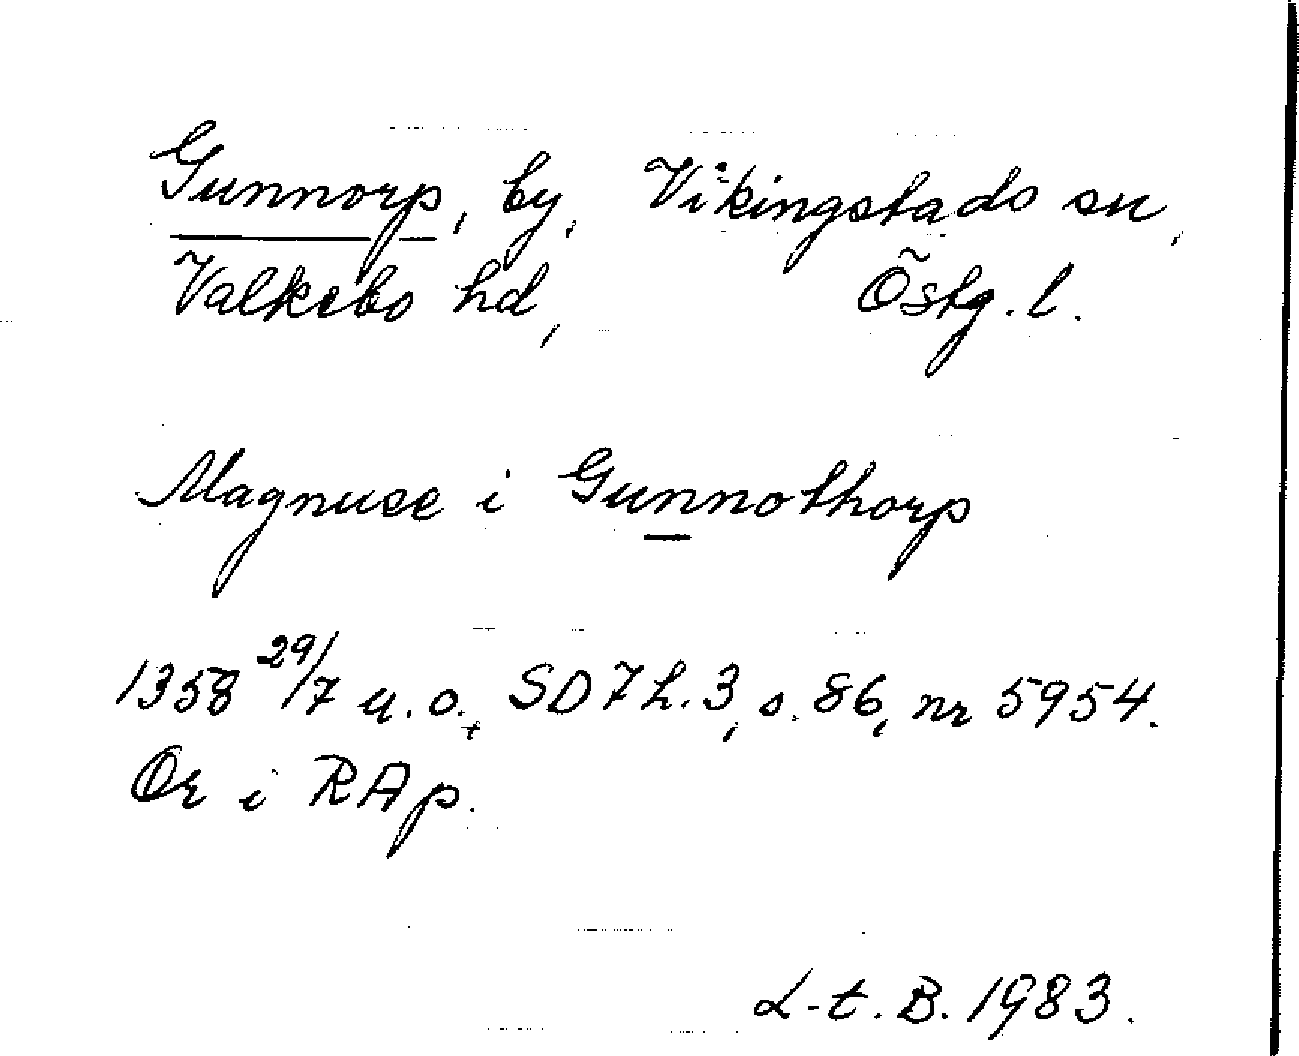 Gunnorp, by, Vikingstads sn,
Valkebo hd, Östg. l.
Magnuse i Gunnothorp
1358 29/7 u. o., SD 7 h. 3, s. 86, nr 5954.
Or i RAp.
L-t. B. 1983.